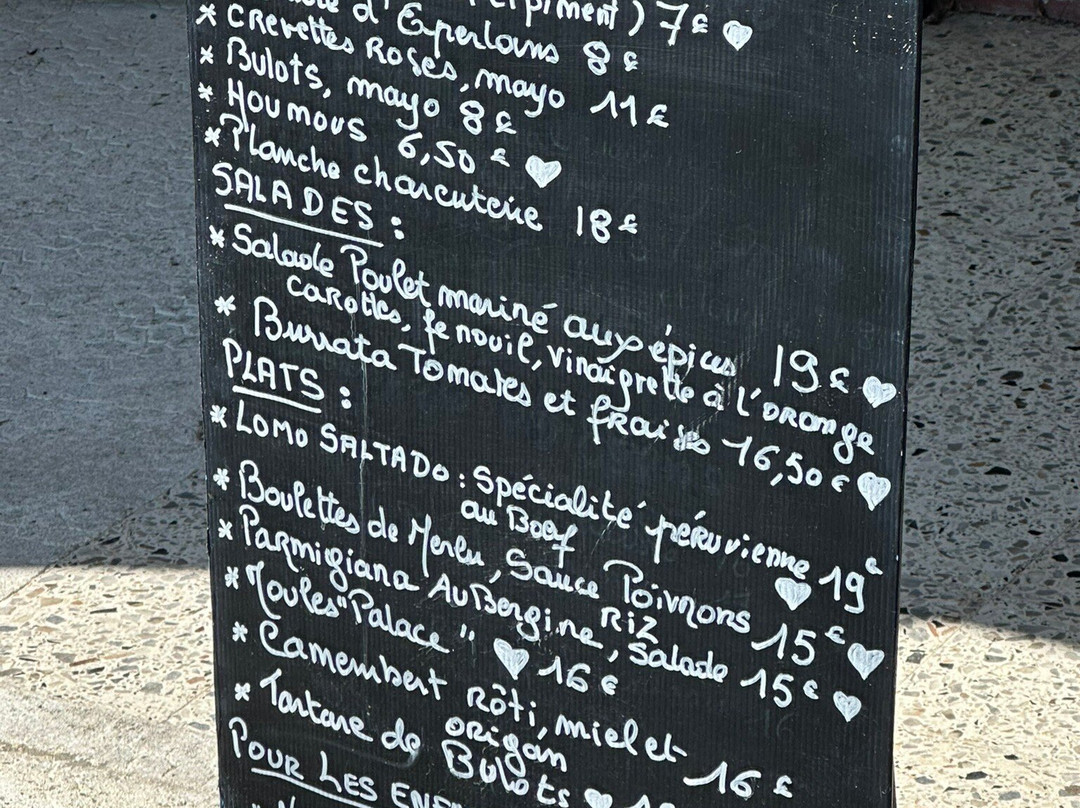 d'Eperlans 8€
piment) 7€
* Crevettes Roses, mayo 11€
* Bulots, mayo 8€
* Houmous 6,50€
* Planche charcuterie 18€
SALADES :
* Salade Poulet mariné aux épices 19€
carottes, fenouil, vinaigrette à l'orange
* Burrata Tomates et fraises 16,50€
PLATS :
* LOMO SALTADO : Spécialité péruvienne 19€
au Boef
* Boulettes de Merlu, Sauce Poivrons 15€
Riz
* Parmigiana Aubergine, Salade 15€
* Moules "Palace" 16€
* Camembert Rôti, miel et 16€
origan
* Tartare de Bulots
POUR LES